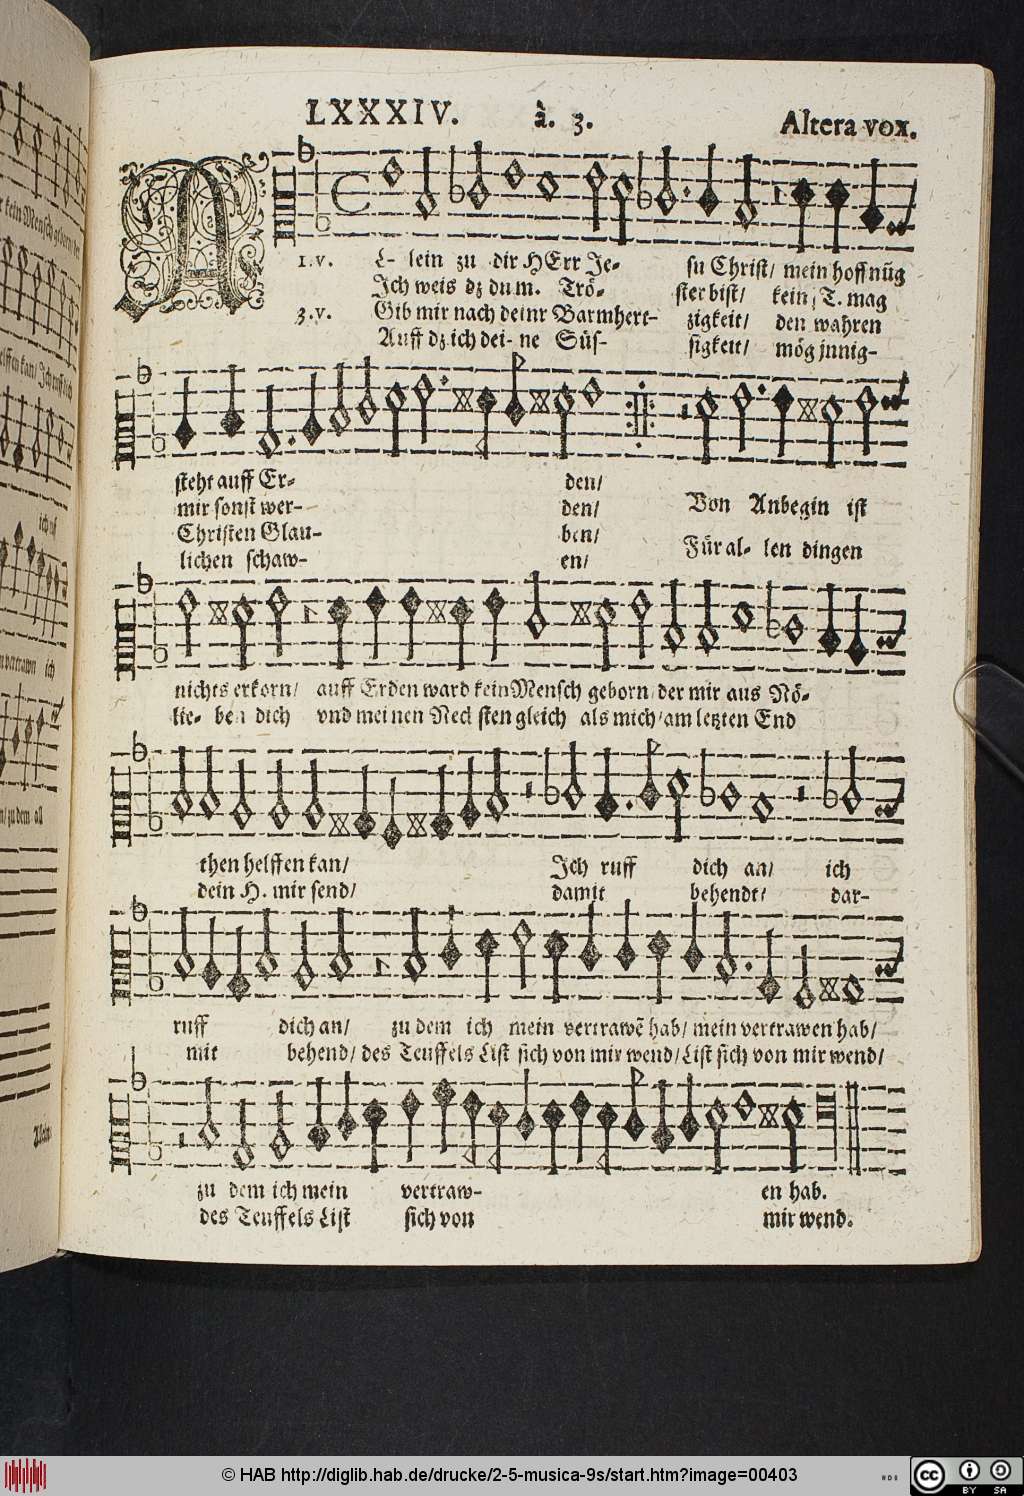 LXXXIV. à. 3. Altera vox.
A
1.v. L- lein zu dir HErr Je- su Christ/ mein hoffnũg
Ich weis dz du m. Trö- ster bist/ kein T. mag
3.v. Gib mir nach deinr Barmhert- zigkeit/ den wahren
Auff dz ich dei- ne Süs- sigkeit/ mög jnnig-
steht auff Er- den/
mir sonst wer- den/ Von Anbegin ist
Christen Glau- ben/
lichen schaw- en/ Für al- len dingen
nichts erkorn/ auff Erden ward kein Mensch geborn/ der mir aus Nö-
lie- ben dich vnd meinen Nech sten gleich als mich/ am letzten End
then helffen kan/ Ich ruff dich an/ ich
dein H. mir send/ damit behendt/ dar-
ruff dich an/ zu dem ich mein vertrawẽ hab/ mein vertrawen hab/
mit behend/ des Teuffels List sich von mir wend/ List sich von mir wend/
zu dem ich mein vertraw- en hab.
des Teuffels List sich von mir wend.
kein Mensch geborn/ der
helffen kan/ Ich ruff dich
ich ruf
vertrawn ich
zu dem all
© HAB http://diglib.hab.de/drucke/2-5-musica-9s/start.htm?image=00403
cc BY SA